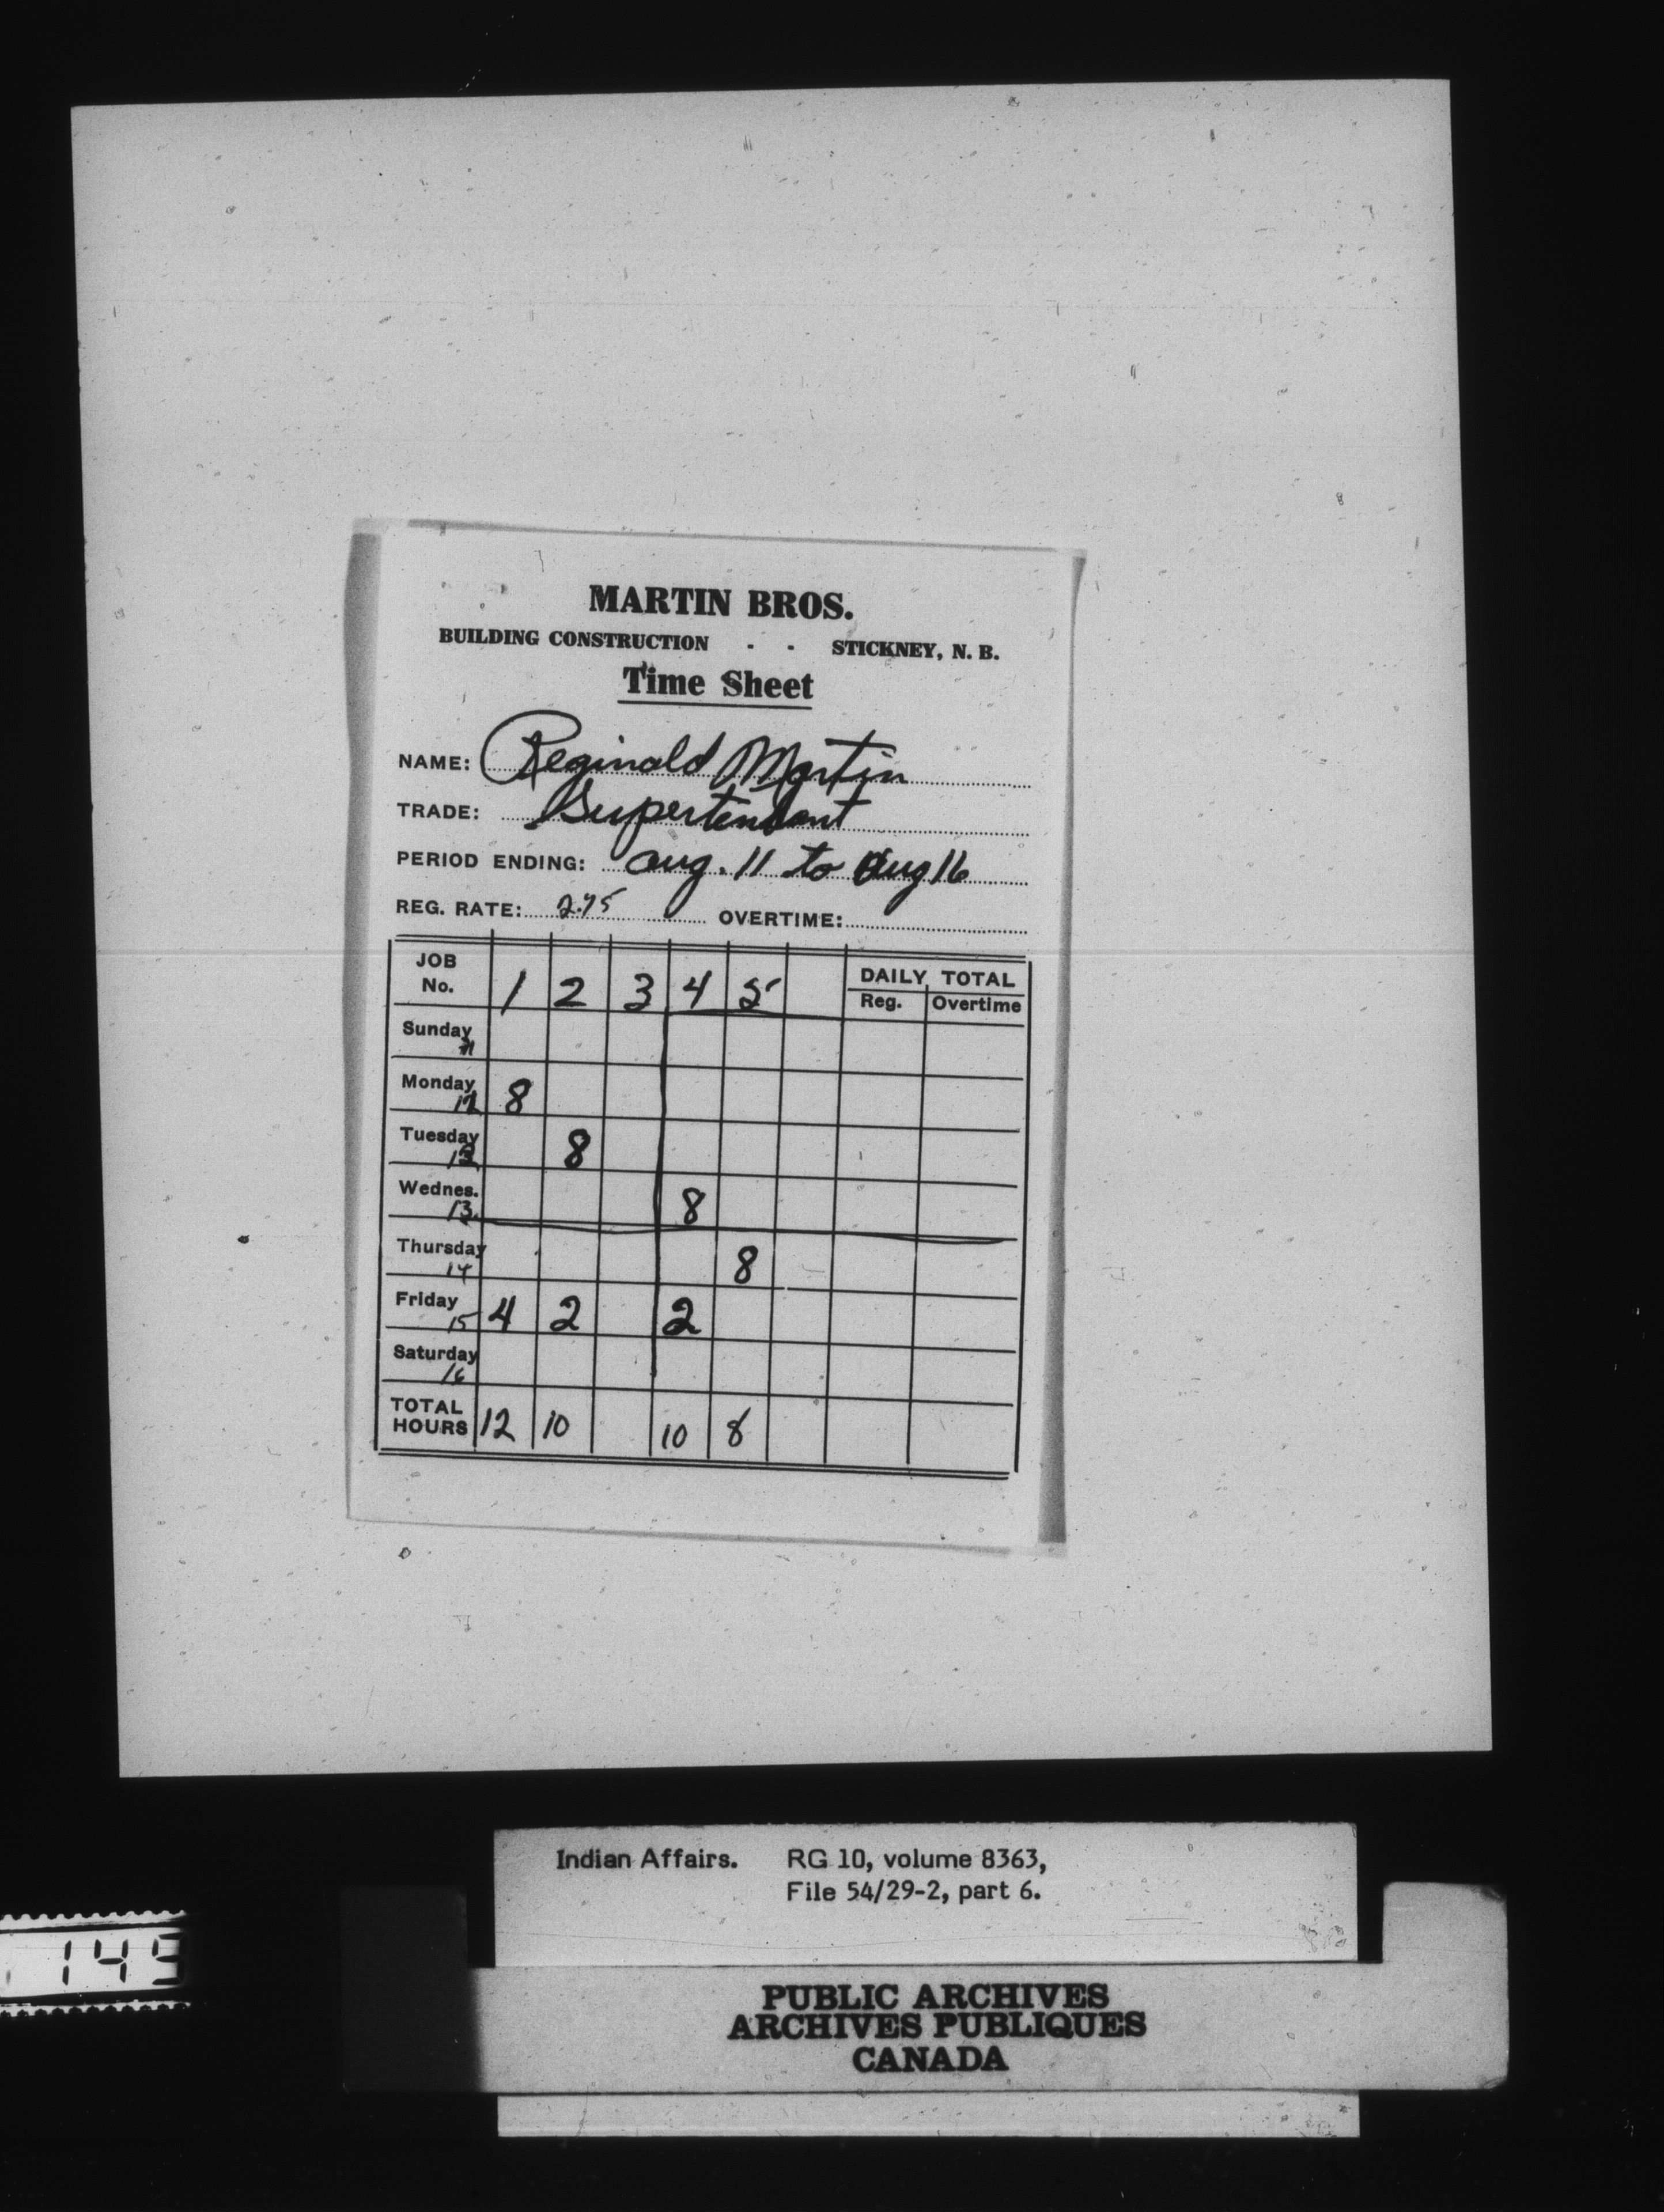 MARTIN BROS.
BUILDING CONSTRUCTION - - STICKNEY, N. B.
Time Sheet
NAME: Reginald Martin
TRADE: Supertendant
PERIOD ENDING: Aug. 11 to Aug 16
REG. RATE: 2.75 OVERTIME:
JOB No. 1 2 3 4 5 DAILY TOTAL
Reg. Overtime
Sunday
Monday 8
Tuesday 8
Wednes. 13 8
Thursday 14 8
Friday 15 4 2 2
Saturday 16
TOTAL HOURS 12 10 10 8
Indian Affairs. RG 10, volume 8363,
File 54/29-2, part 6.
149
PUBLIC ARCHIVES
ARCHIVES PUBLIQUES
CANADA